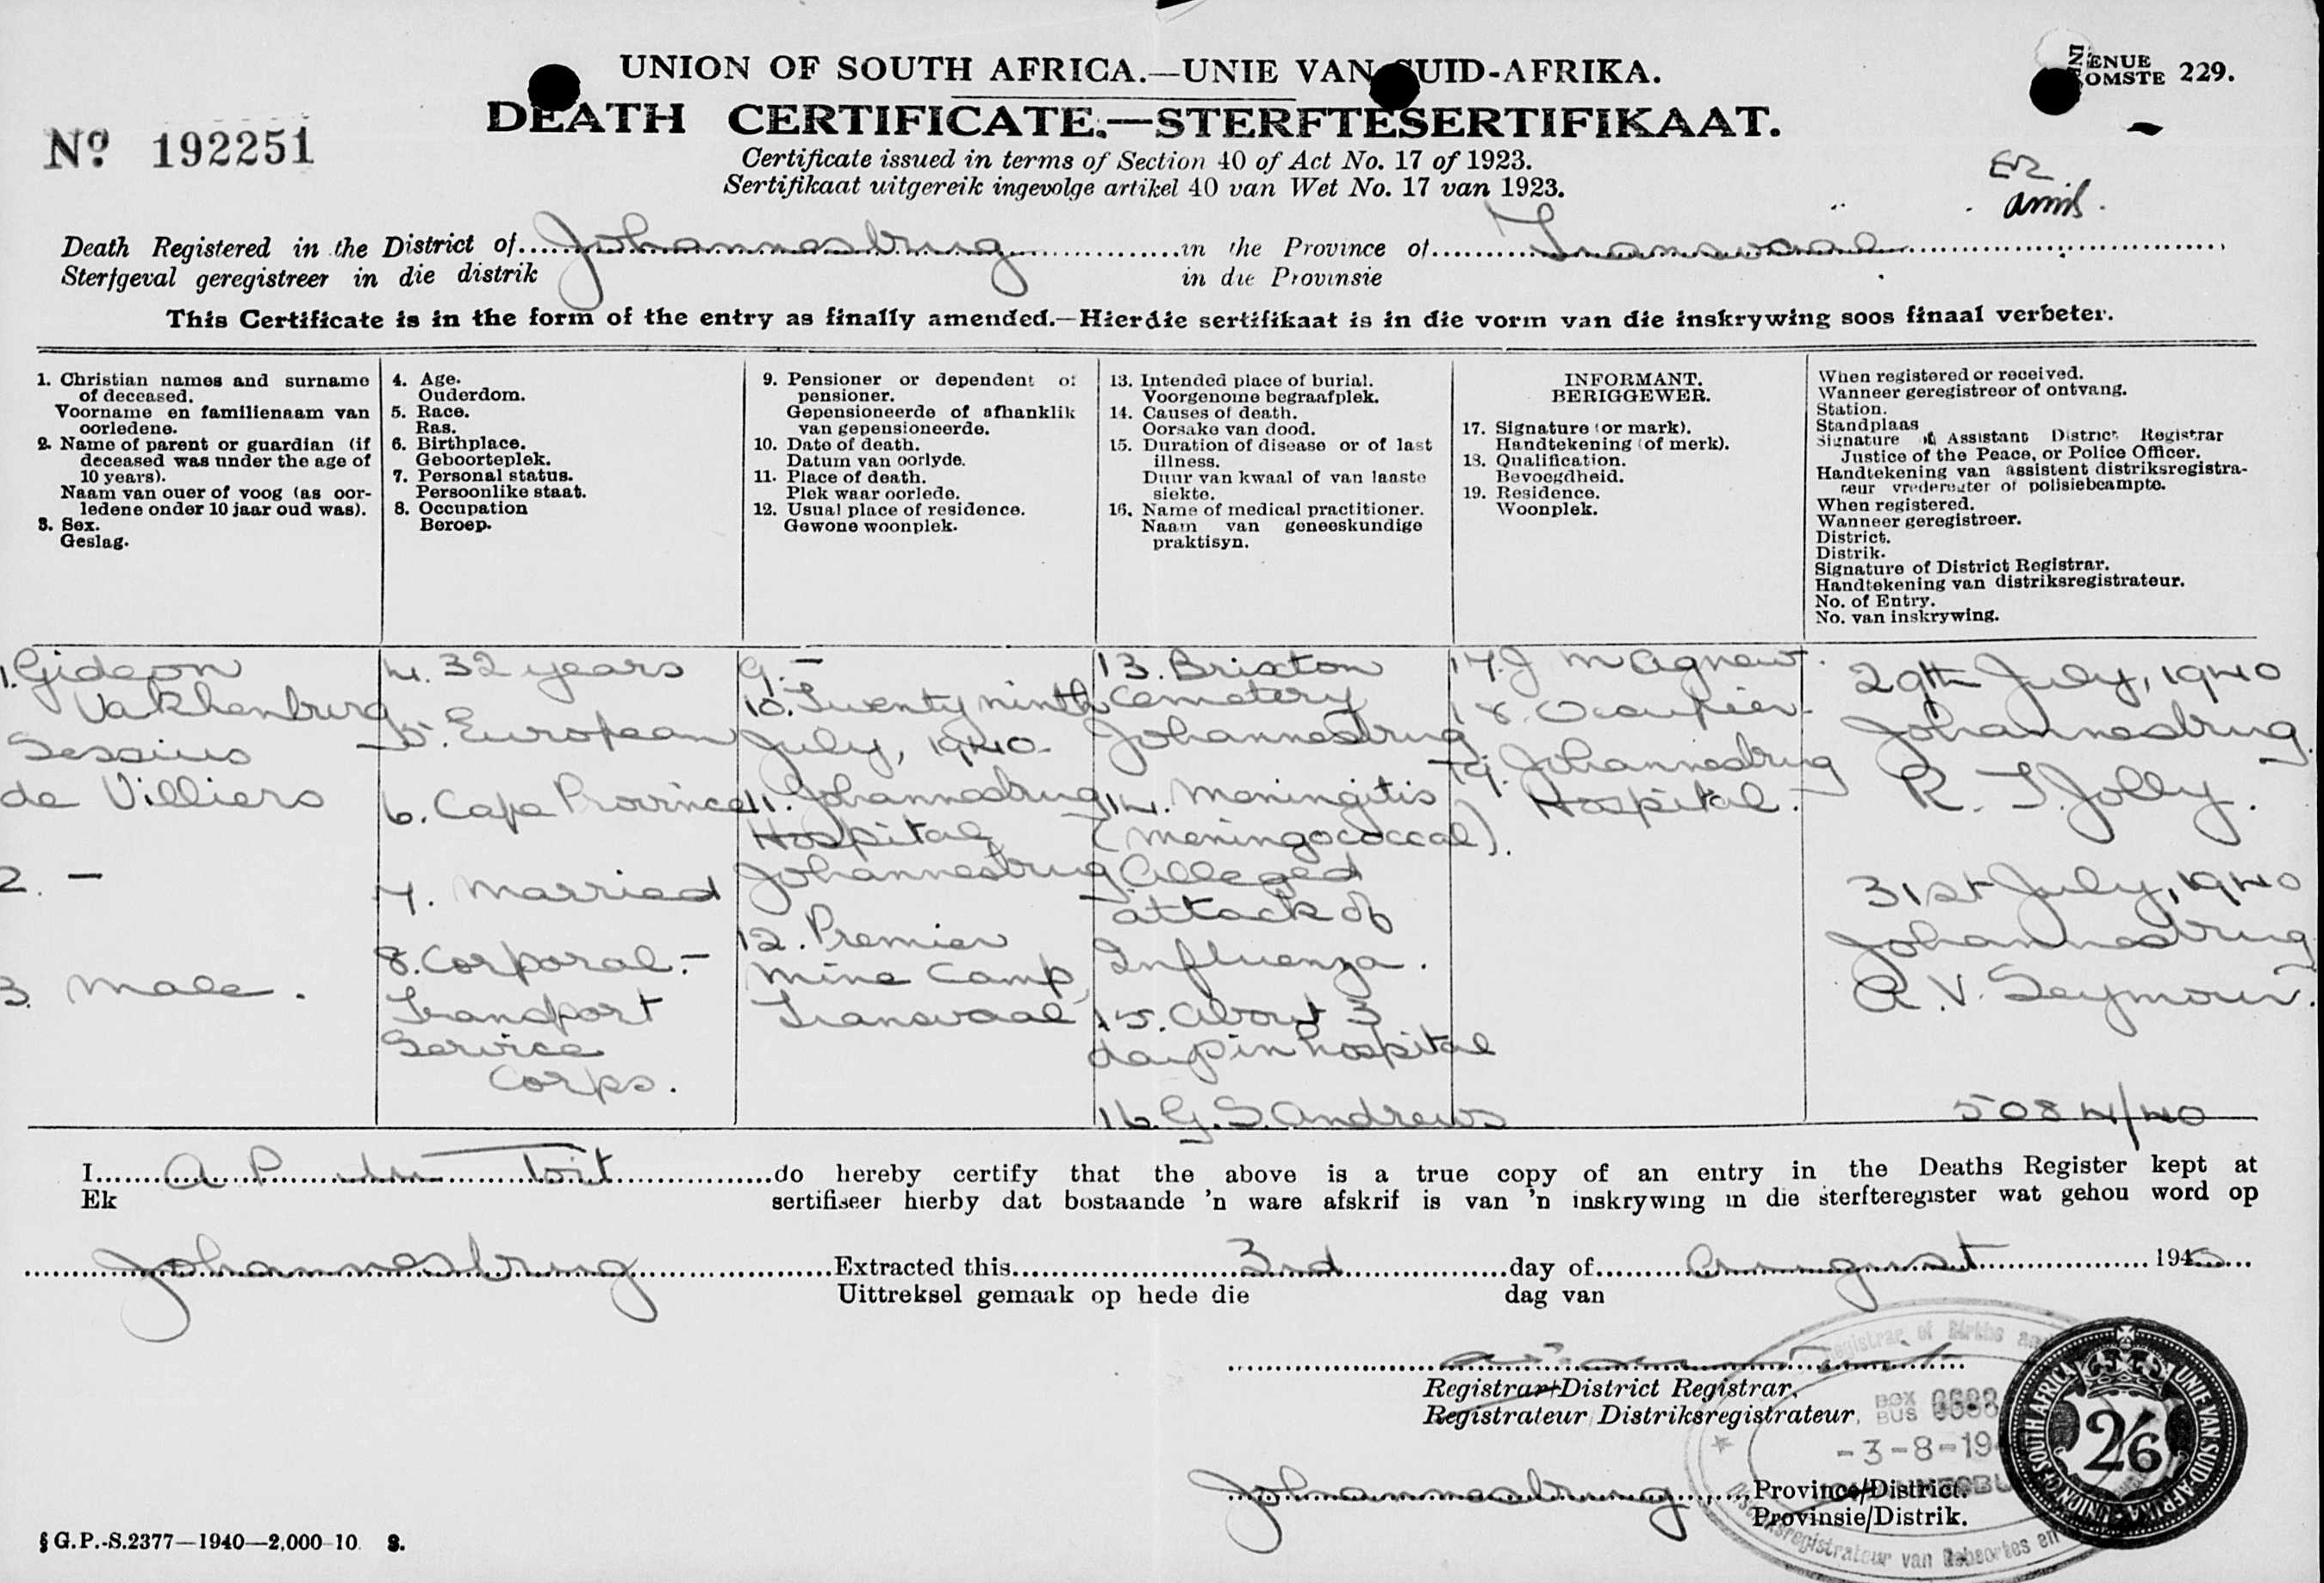 UNION OF SOUTH AFRICA.—UNIE VAN SUID-AFRIKA.
ENUE
OMSTE 229.
DEATH CERTIFICATE.—STERFTESERTIFIKAAT.
No 192251
Certificate issued in terms of Section 40 of Act No. 17 of 1923.
Sertifikaat uitgereik ingevolge artikel 40 van Wet No. 17 van 1923.
Death Registered in the District of Johannesburg in the Province of Transvaal
Sterfgeval geregistreer in die distrik in die Provinsie
This Certificate is in the form of the entry as finally amended.—Hierdie sertifikaat is in die vorm van die inskrywing soos finaal verbeter.
1. Christian names and surname
of deceased.
Voorname en familienaam van
oorledene.
2. Name of parent or guardian (if
deceased was under the age of
10 years).
Naam van ouer of voog (as oor-
ledene onder 10 jaar oud was).
3. Sex.
Geslag.
4. Age.
Ouderdom.
5. Race.
Ras.
6. Birthplace.
Geboorteplek.
7. Personal status.
Persoonlike staat.
8. Occupation
Beroep.
9. Pensioner or dependent of
pensioner.
Gepensioneerde of afhanklik
van gepensioneerde.
10. Date of death.
Datum van oorlyde.
11. Place of death.
Plek waar oorlede.
12. Usual place of residence.
Gewone woonplek.
13. Intended place of burial.
Voorgenome begraafplek.
14. Causes of death.
Oorsake van dood.
15. Duration of disease or of last
illness.
Duur van kwaal of van laaste
siekte.
16. Name of medical practitioner.
Naam van geneeskundige
praktisyn.
INFORMANT.
BERIGGEWER.
17. Signature (or mark).
Handtekening (of merk).
18. Qualification.
Bevoegdheid.
19. Residence.
Woonplek.
When registered or received.
Wanneer geregistreer of ontvang.
Station.
Standplaas
Signature of Assistant District Registrar
Justice of the Peace, or Police Officer.
Handtekening van assistent distriksregistra-
teur vrederegter of polisiebeampte.
When registered.
Wanneer geregistreer.
District.
Distrik.
Signature of District Registrar.
Handtekening van distriksregistrateur.
No. of Entry.
No. van inskrywing.
1. Gideon
Valkhenburg
Sessius
de Villiers
2. —
3. Male.
4. 32 years
5. European
6. Cape Province
7. Married
8. Corporal.—
Transport
Service
Corps.
9. —
10. Twenty ninth
July, 1940.
11. Johannesburg
Hospital
Johannesburg
12. Premier
Mine Camp,
Transvaal
13. Brixton
Cemetery
Johannesburg
14. Meningitis
(Meningococcal).
Alleged
attack of
Influenza.
15. About 3
days in hospital
16. G. S. Andrews
17. J M Agnew.
18. Occupier
19. Johannesburg
Hospital.
29th July, 1940
Johannesburg.
R. T. Jolly.
31st July, 1940
Johannesburg
R. V. Seymour.
5084/40
I A P du Toit do hereby certify that the above is a true copy of an entry in the Deaths Register kept at
Ek sertifiseer hierby dat bostaande 'n ware afskrif is van 'n inskrywing in die sterfteregister wat gehou word op
Johannesburg Extracted this 3rd day of August 1940
Uittreksel gemaak op hede die dag van
Registrar/District Registrar,
Registrateur/Distriksregistrateur,
BOX
BUS
-3-8-19
Johannesburg Province/District.
Provinsie/Distrik.
Registrar of Births
Distriksregistrateur van Geboortes en
UNION OF SOUTH AFRICA UNIE VAN SUID-AFRIKA
2/6
§ G.P.-S.2377—1940—2,000-10 S.